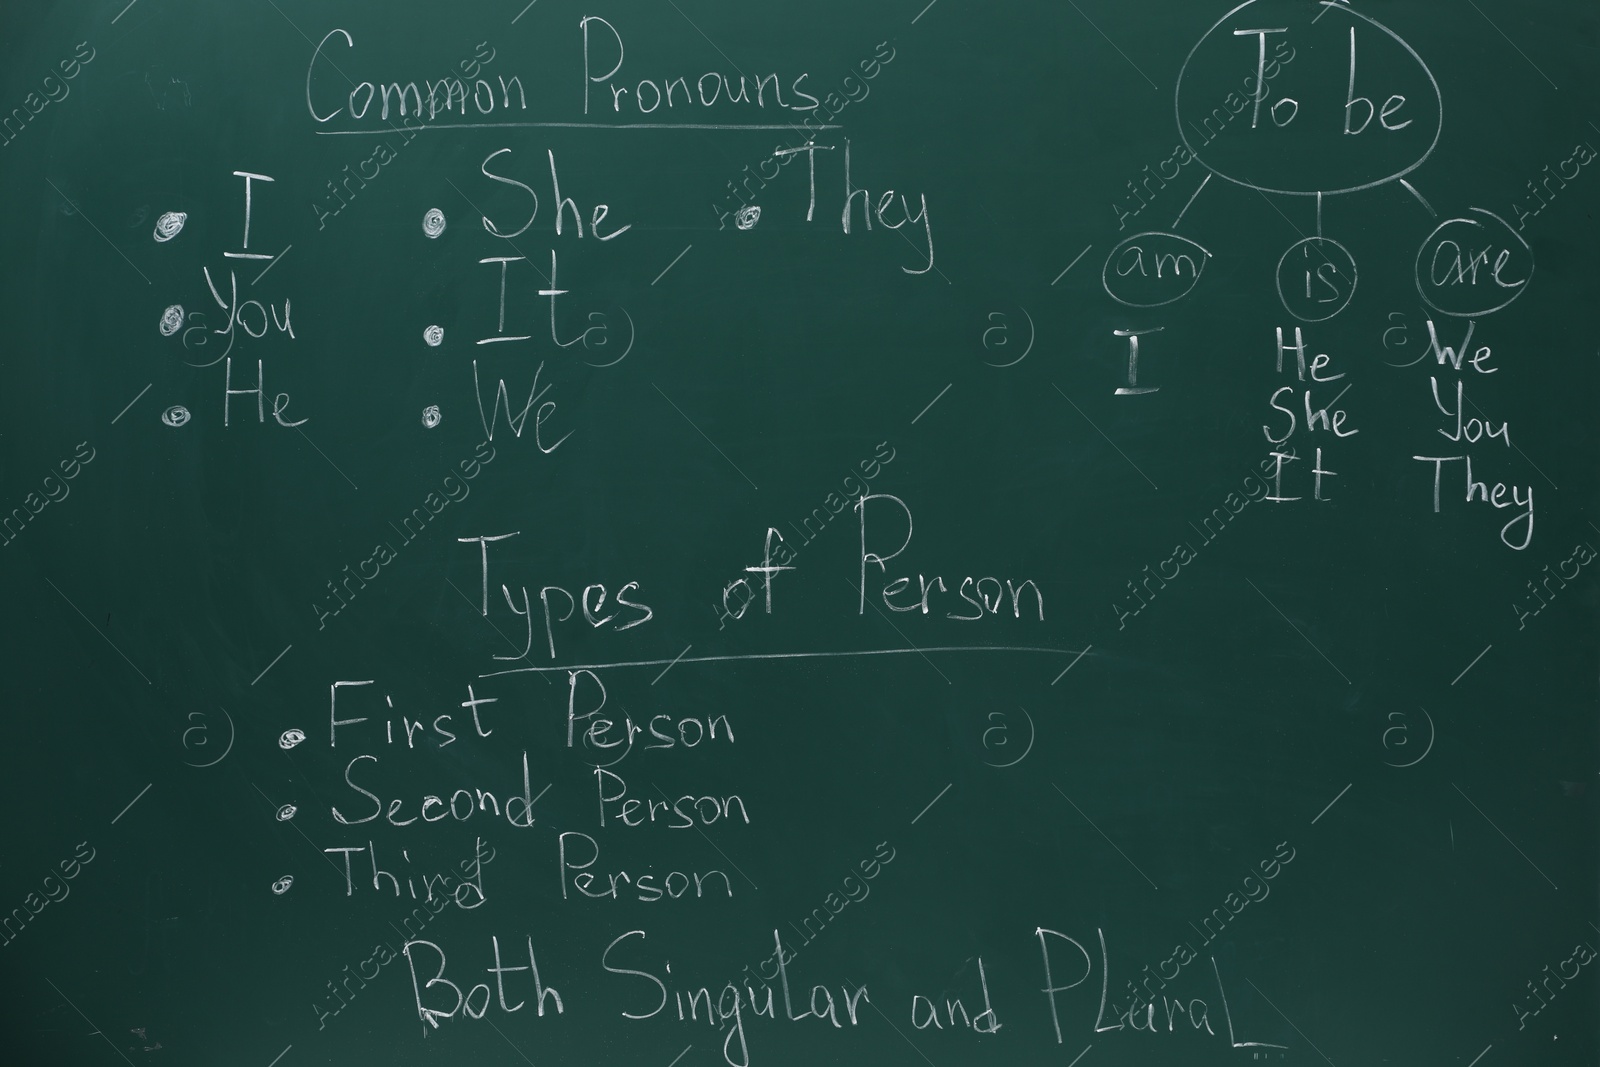 Common Pronouns
• I
• You
• He
• She
• It
• We
• They
To be
am is are
I
He
She
It
We
You
They
Types of Person
• First Person
• Second Person
• Third Person
Both Singular and Plural
Africa Images